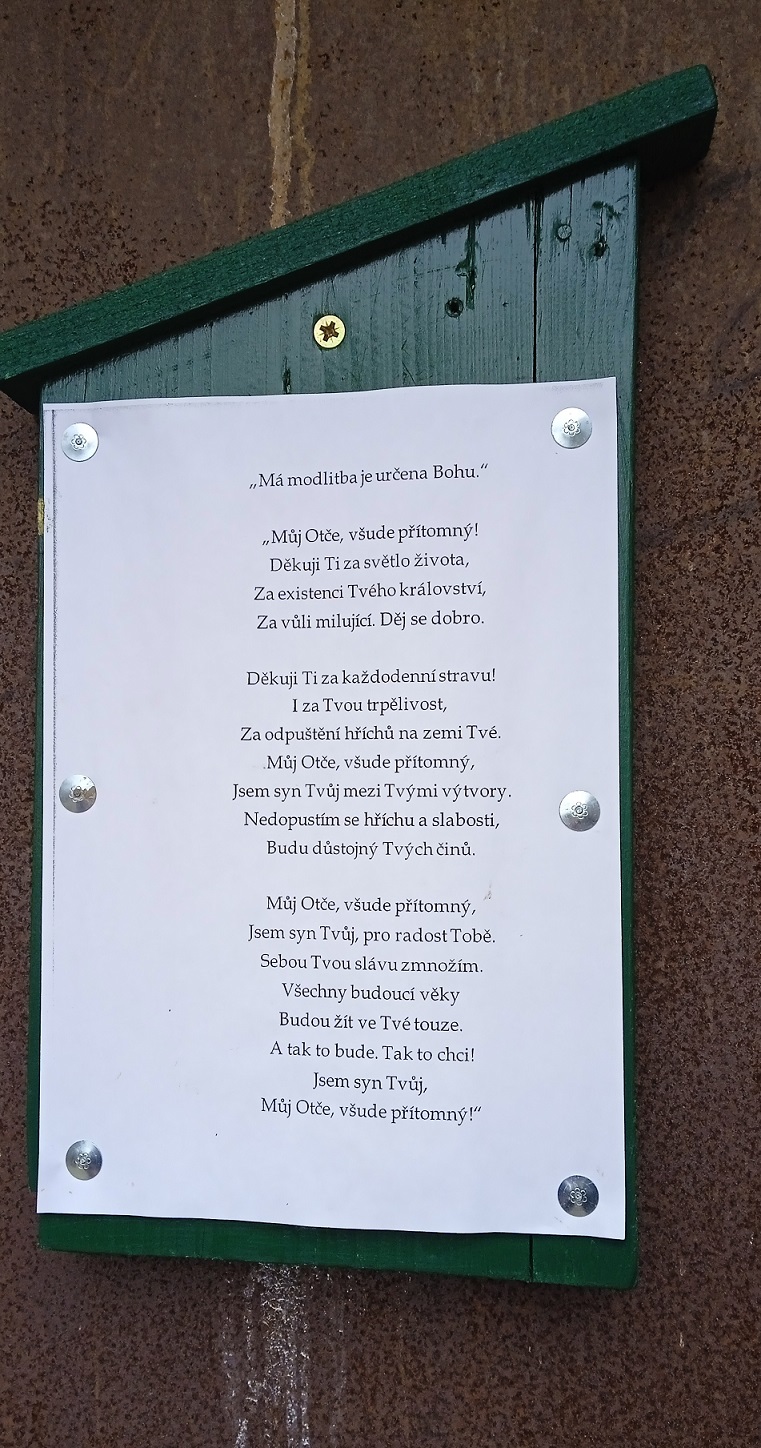 „Má modlitba je určena Bohu.“
„Můj Otče, všude přítomný!
Děkuji Ti za světlo života,
Za existenci Tvého království,
Za vůli milující. Děj se dobro.
Děkuji Ti za každodenní stravu!
I za Tvou trpělivost,
Za odpuštění hříchů na zemi Tvé.
Můj Otče, všude přítomný,
Jsem syn Tvůj mezi Tvými výtvory.
Nedopustím se hříchu a slabosti,
Budu důstojný Tvých činů.
Můj Otče, všude přítomný,
Jsem syn Tvůj, pro radost Tobě.
Sebou Tvou slávu zmnožím.
Všechny budoucí věky
Budou žít ve Tvé touze.
A tak to bude. Tak to chci!
Jsem syn Tvůj,
Můj Otče, všude přítomný!“